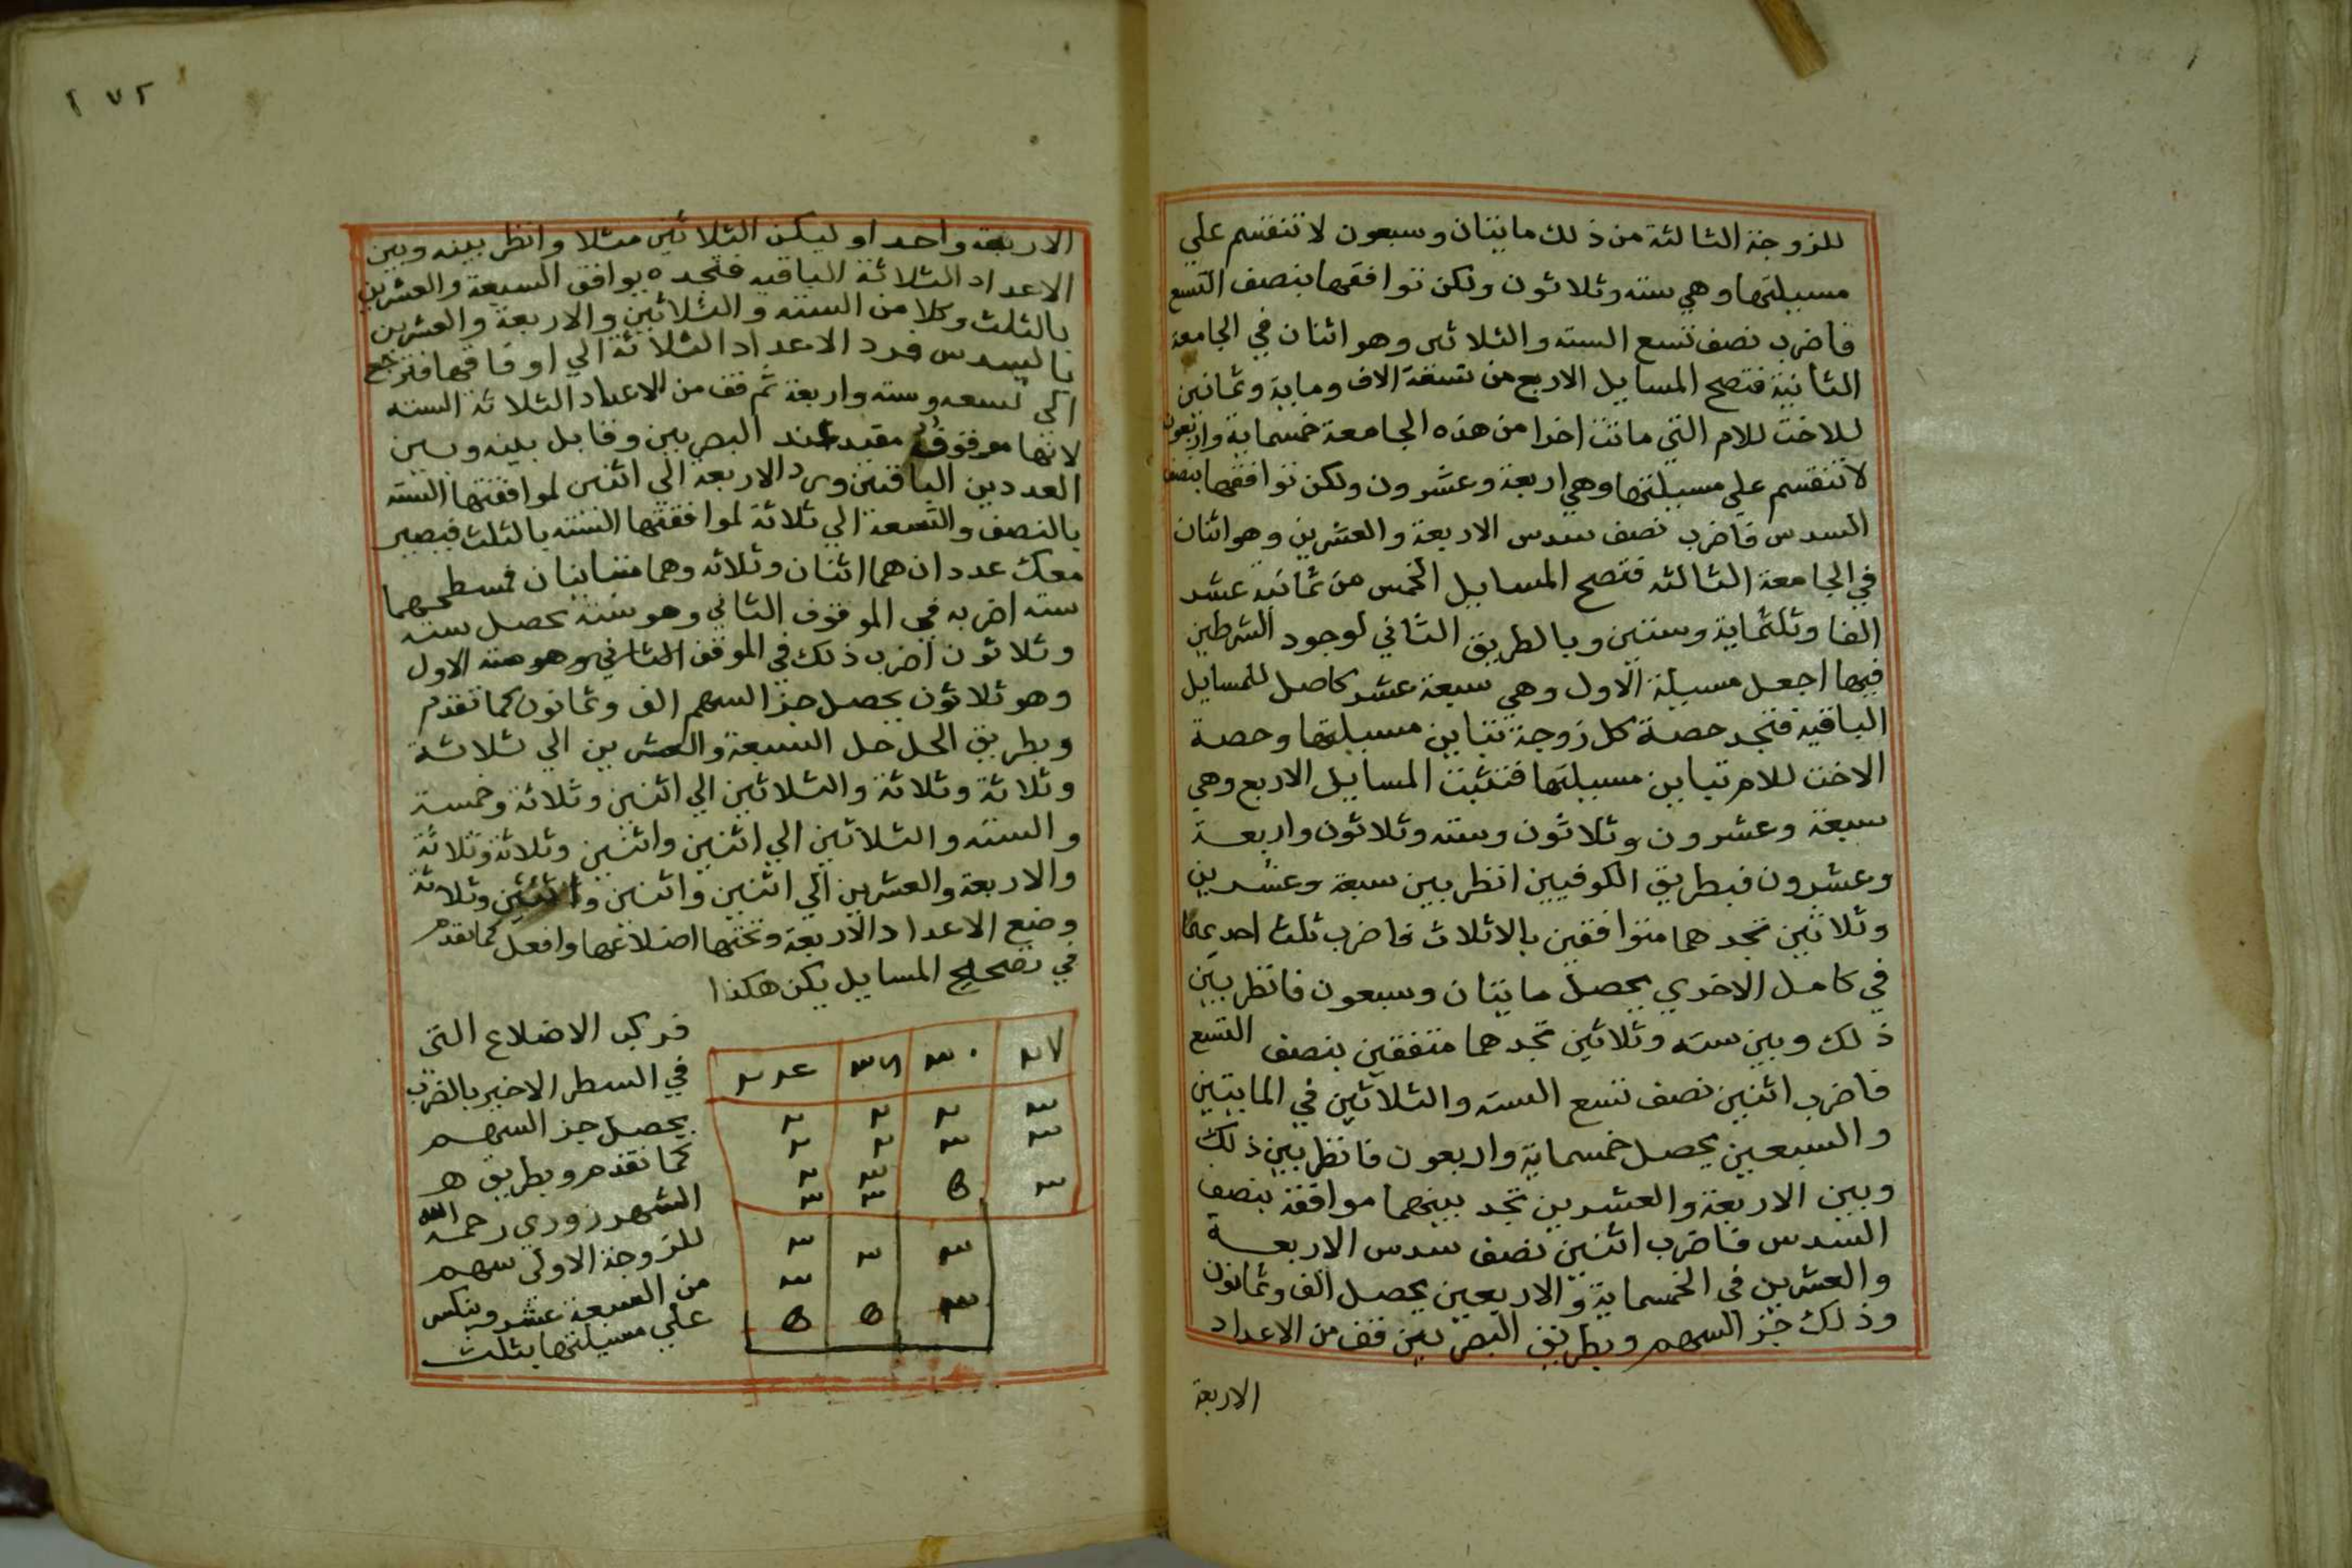 للزوجة الثالثة من ذلك مايتان وسبعون لا تنقسم علي
مسيلتها وهي سته وثلاثون ولكن توافقها بنصف التسع
فاضرب نصف تسع السته والثلاثين وهو اثنان في الجامعة
الثانية فتصح المسايل الاربع من تسعة الاف وماية وثمانين
للاخت للام التي ماتت اخرا من هذه الجامعة خمسماية واربعون
لا تنقسم علي مسيلتها وهي اربعة وعشرون ولكن توافقها بنصف
السدس فاضرب نصف سدس الاربعة والعشرين وهو اثنان
في الجامعة الثالثه فتصح المسايل الخمس من ثمانيه عشر
الفا وثلثماية وستين وبالطريق الثاني لوجود الشرطين
فيها اجعل مسيلة الاول وهي سبعة عشر كاصل للمسايل
الباقيه فتجد حصة كل زوجة تباين مسيلتها وحصة
الاخت للام تباين مسيلتها فتثبت المسايل الاربع وهي
سبعة وعشرون وثلاثون وسته وثلاثون واربعة
وعشرون فبطريق الكوفيين انظر بين سبعة وعشرين
وثلاثين تجدهما متوافقين بالاثلاث فاضرب ثلث احدهما
في كامل الاخري يحصل مايتان وسبعون فانظر بين
ذلك وبين سته وثلاثين تجدهما متفقين بنصف التسع
فاضرب اثنين نصف تسع السته والثلاثين في المايتين
والسبعين يحصل خمسماية واربعون فانظر بين ذلك
وبين الاربعة والعشرين تجد بينهما موافقة بنصف
السدس فاضرب اثنين نصف سدس الاربعة
والعشرين في الخمسماية والاربعين يحصل الف وثمانون
وذلك جز السهم وبطريق البصريين قف من الاعداد
الاربعة
١٧٢
الاربعة واحدا وليكن الثلاثين مثلا وانظر بينه وبين
الاعداد الثلاثة الباقيه فتجده يوافق السبعة والعشرين
بالثلث وكلا من السته والثلاثين والاربعة والعشرين
بالسدس فرد الاعداد الثلاثة الي اوفاقها فترجع
الي تسعه وسته واربعة ثم قف من الاعداد الثلاثة السته
لانها موقوف مقيد عند البصريين وقابل بينه وبين
العددين الباقيين ورد الاربعه الي اثنين لموافقتها السته
بالنصف والتسعة الي ثلاثة لموافقتها السته بالثلث فيصير
معك عددان هما اثنان وثلاثه وهما متباينان فمسطحهما
سته اضربه في الموقوف الثاني وهو سته يحصل سته
وثلاثون اضرب ذلك في الموقف الثاني وهو سته الاول
وهو ثلاثون يحصل جز السهم الف وثمانون كما تقدم
وبطريق الحل حل السبعة والعشرين الي ثلاثة
وثلاثة وثلاثة والثلاثين الي اثنين وثلاثة وخمسة
والسته والثلاثين الي اثنين واثنين وثلاثة وثلاثة
والاربعة والعشرين الي اثنين واثنين واثنين وثلاثة
وضع الاعداد الاربعة وتحتها اضلاعها وافعل كما تقدم
في تصحيح المسايل يكن هكذا
٢٧ ٣٠ ٣٦ ٢٤
٣ ٢ ٢ ٢
٣ ٣ ٢ ٢
٣ ٥ ٣ ٢
٣ ٣
٣ ٣ ٣
٣
٣ ٥ ٥
فركب الاضلاع التي
في السطر الاخير بالضرب
يحصل جز السهم
كما تقدم وبطريق هـ
الشهرزوري رحمه الله
للزوجة الاولي سهم
من السبعة عشر وينكس
علي مسيلتها بثلث